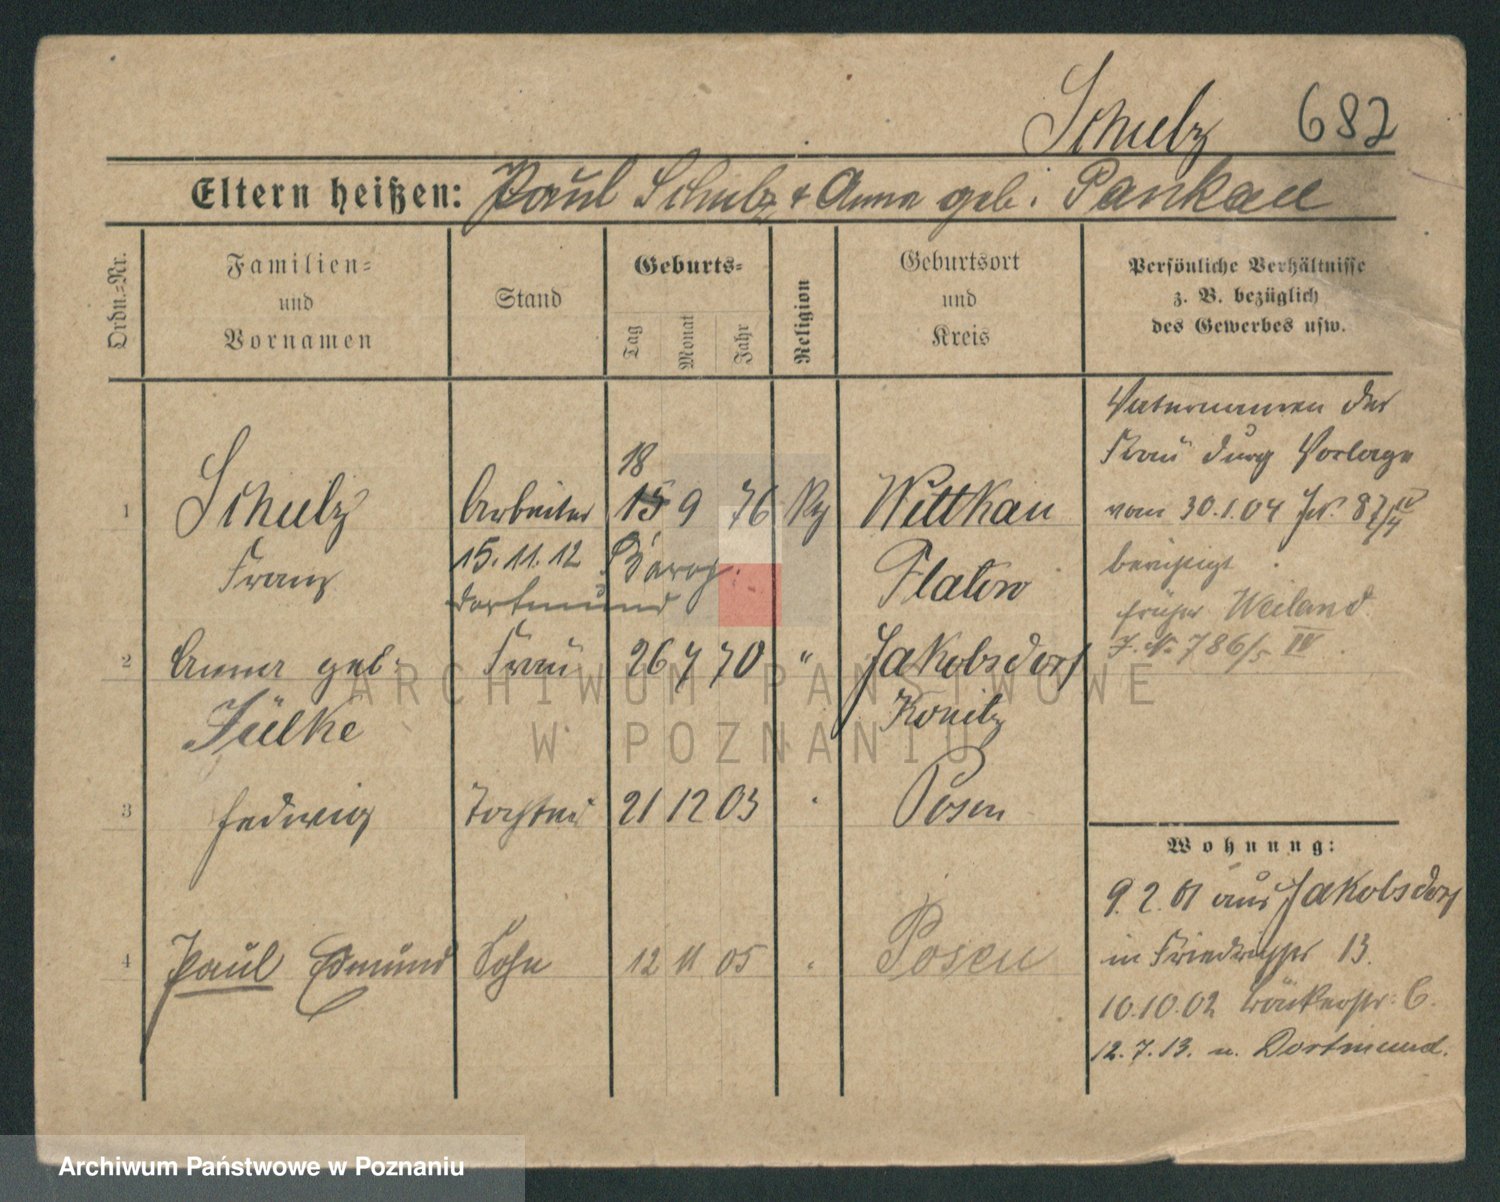 Schulz 682
Eltern heißen: Paul Schulz + Anna geb. Pankau
Ordn.-Nr.
Familien-
und
Vornamen
Stand
Geburts-
Tag
Monat
Jahr
Religion
Geburtsort
und
Kreis
Persönliche Verhältnisse
z. B. bezüglich
des Gewerbes usw.
18
1 Schulz Arbeiter 15 9 76 Wittkau
Franz 15.11.12 Flatow
Dortmund
2 Anna geb. Frau 26 7 70 " Jakobsdorf
Jülke Konitz
3 Hedwig Tochter 21 12 03 " Posen
4 Paul Edmund Sohn 12 11 05 " Posen
Vatersnamen der
Frau durch Vorlage
vom 30.1.04
berichtigt
früher Weiland
J. N. 786/5 IV
Wohnung:
9.2.01 aus Jakobsdorf
in 13.
10.10.02 6.
12.7.13. n. Dortmund.
ARCHIWUM PAŃSTWOWE
W POZNANIU
Archiwum Państwowe w Poznaniu